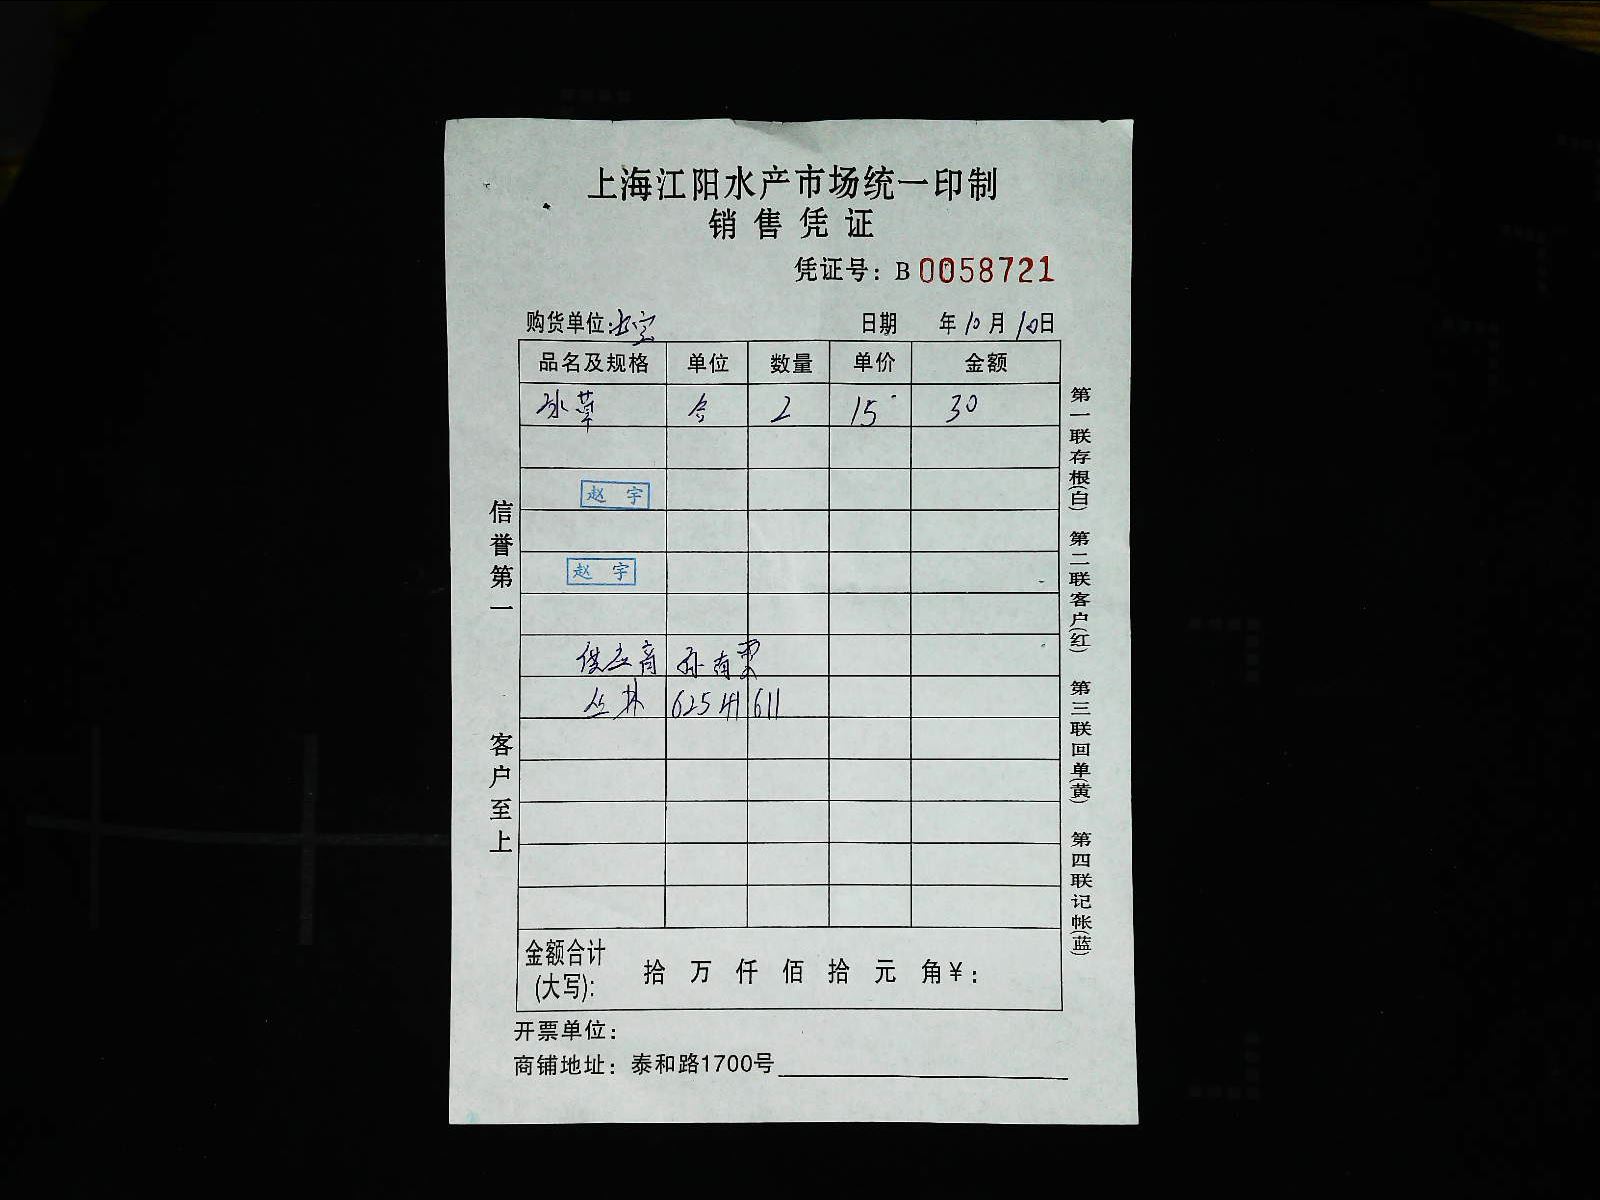 上海江阳水产市场统一印制
销售凭证
凭证号：B 0058721
购货单位：
日期 年 10 月 10 日
品名及规格 单位 数量 单价 金额
冰草 合 2 15 30
赵 宇
赵 宇
供应商 孙有
丛林 62541611
金额合计(大写): 拾 万 仟 佰 拾 元 角 ¥：
开票单位：
商铺地址：泰和路1700号
信誉第一 客户至上
第一联存根(白) 第二联客户(红) 第三联回单(黄) 第四联记帐(蓝)